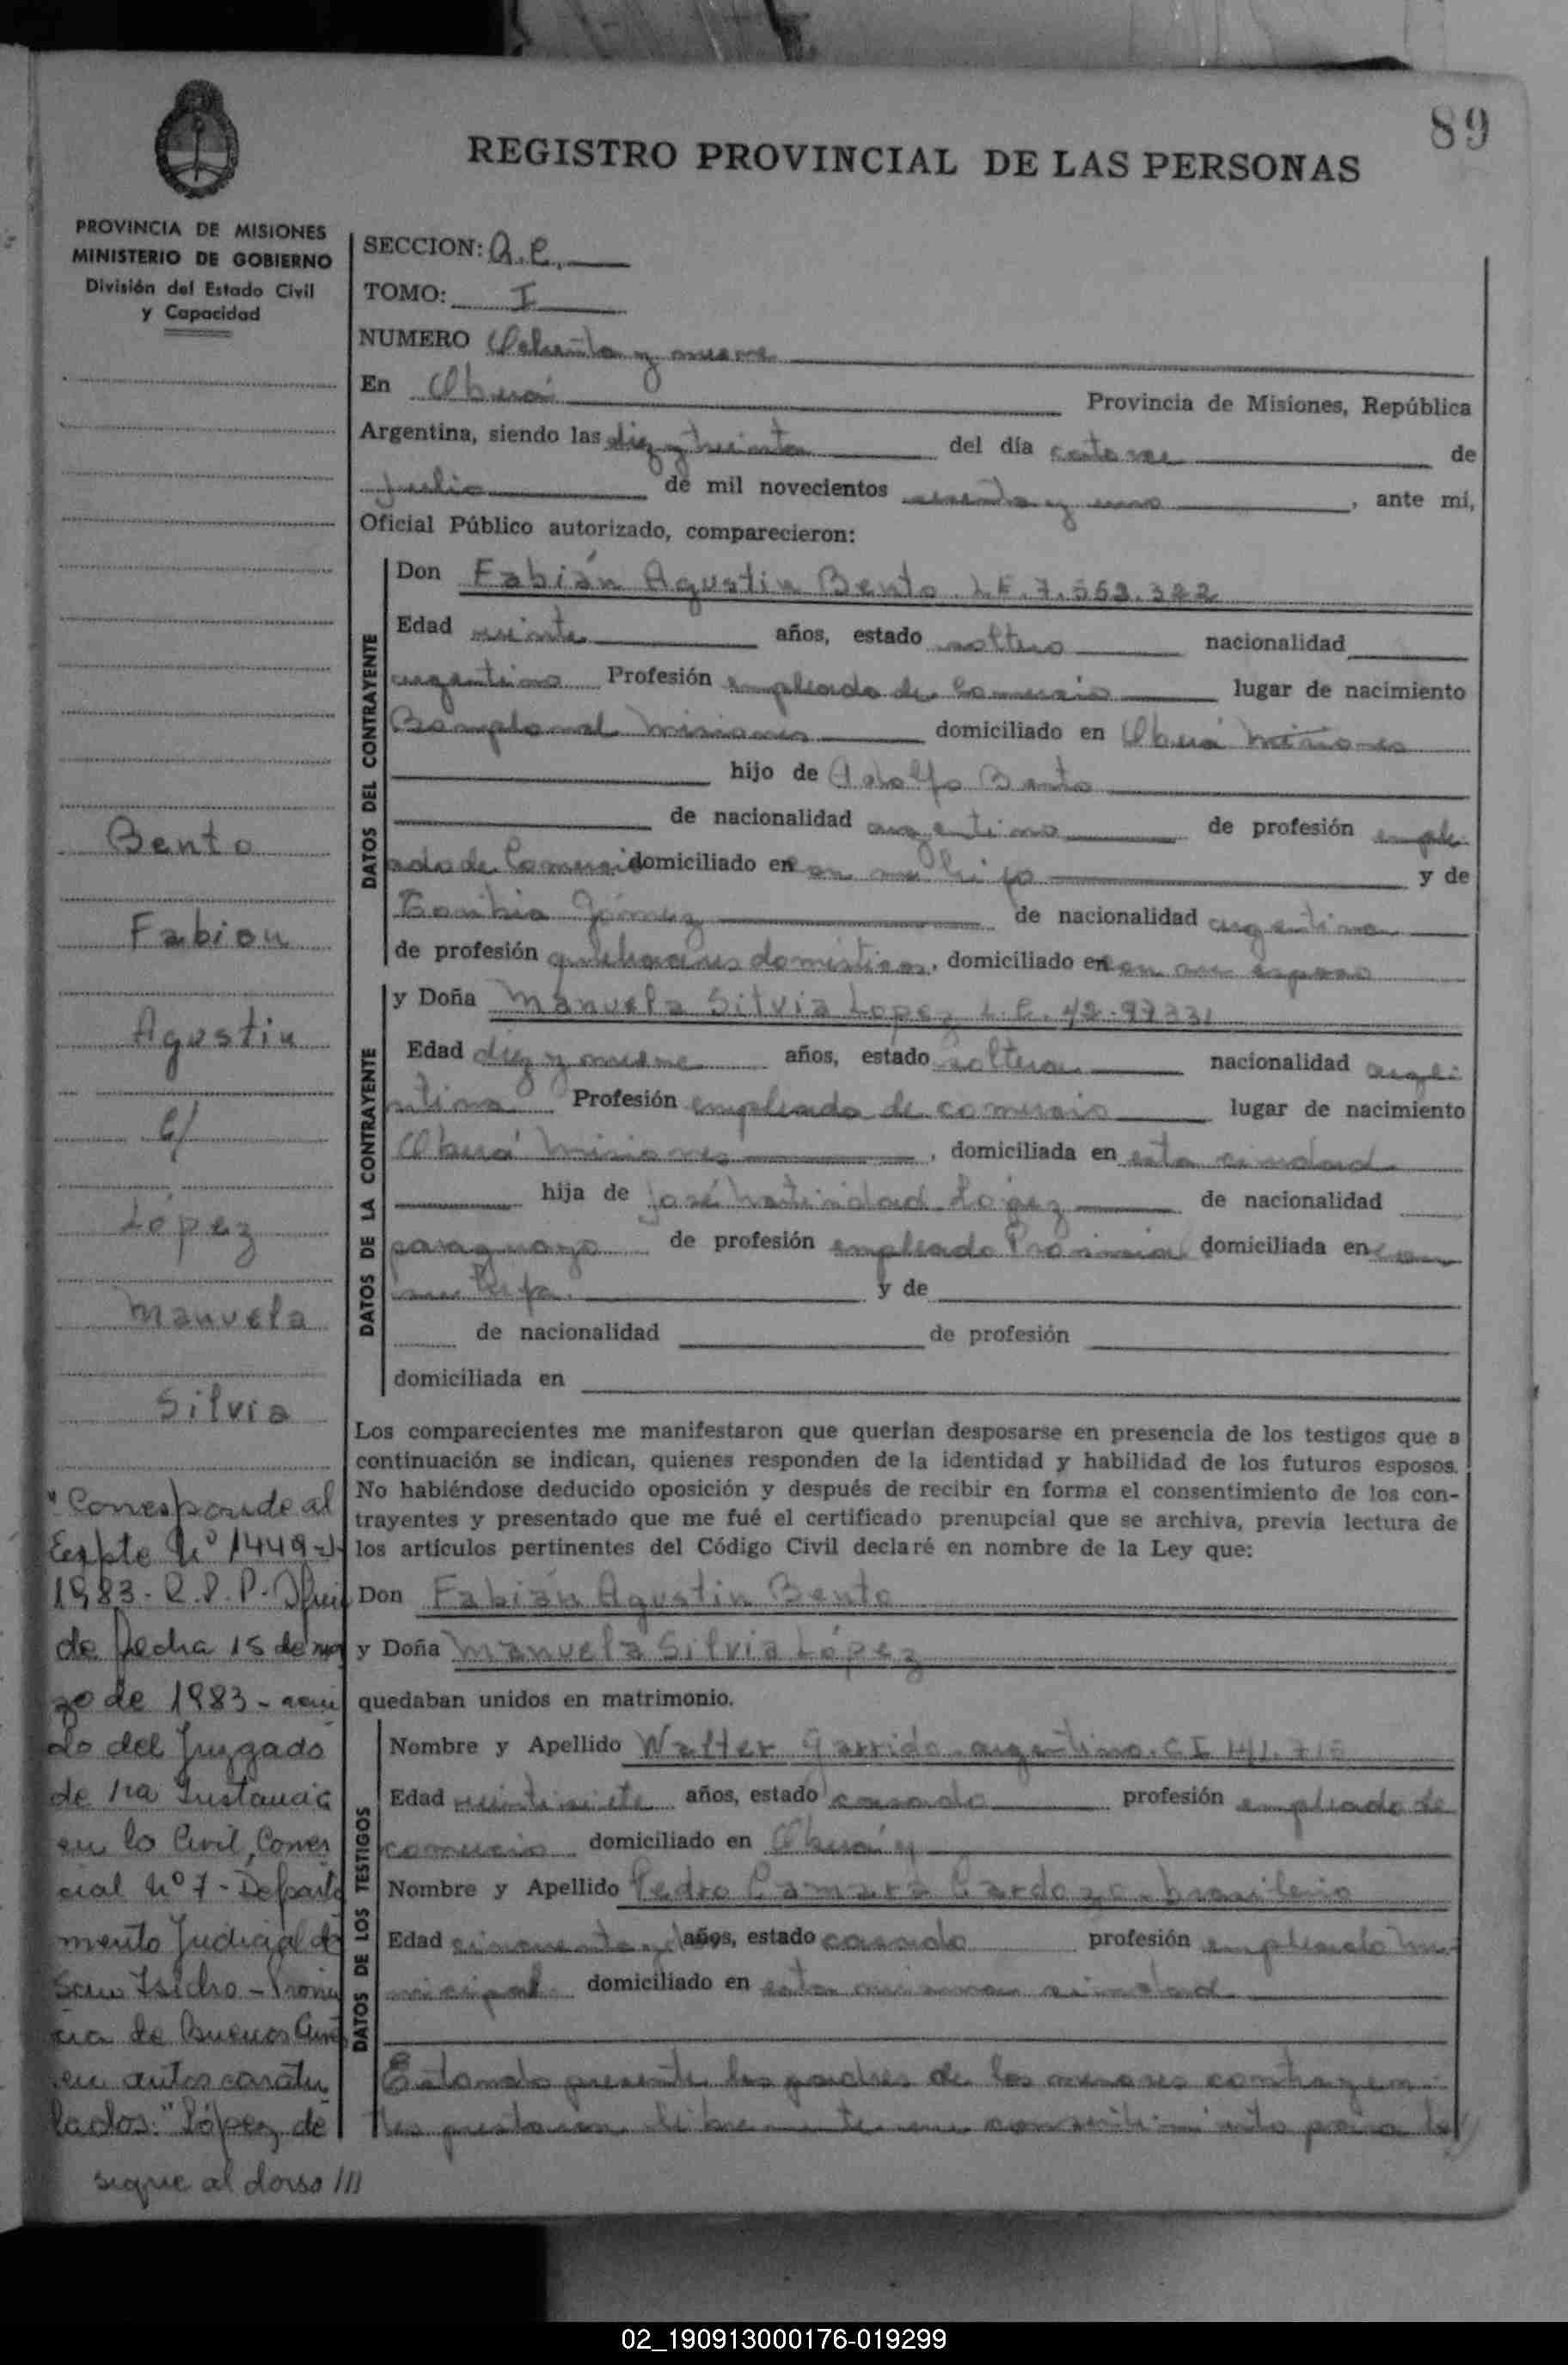 89
REGISTRO PROVINCIAL DE LAS PERSONAS
PROVINCIA DE MISIONES
MINISTERIO DE GOBIERNO
División del Estado Civil
y Capacidad
Bento
Fabian
Agustin
c/
López
Manuela
Silvia
"Corresponde al
Expte Nº 1449-
1983- R.P.P. Oficio
de fecha 15 de mar
zo de 1983-
do del Juzgado
de 1ra Instancia
en lo Civil, Comer
cial Nº 7- Departa
mento Judicial de
San Isidro- Provin
cia de Buenos Aires
en autos caratu
lados: "López de
sigue al dorso ///
SECCION: A.C.
TOMO: I
NUMERO Ochenta y nueve
En Oberá Provincia de Misiones, República
Argentina, siendo las diez y treinta del día catorce de
julio de mil novecientos sesenta y uno, ante mí,
Oficial Público autorizado, comparecieron:
DATOS DEL CONTRAYENTE
Don Fabián Agustin Bento. L.E. 7.563.322
Edad veinte años, estado soltero nacionalidad
argentino Profesión empleado de Comercio lugar de nacimiento
Bompland Misiones domiciliado en Oberá Misiones
hijo de Adolfo Bento
de nacionalidad argentino de profesión emple
ado de Comercio domiciliado en con su hijo y de
Toribia Gómez de nacionalidad argentina
de profesión quehaceres domésticos, domiciliado en con su esposo
DATOS DE LA CONTRAYENTE
y Doña Manuela Silvia Lopez L.C. 42.97331
Edad diez y nueve años, estado soltera nacionalidad arge
ntina Profesión empleada de comercio lugar de nacimiento
Oberá Misiones, domiciliada en esta ciudad
hija de José Natividad López de nacionalidad
paraguayo de profesión empleado Provincial domiciliada en con
su hija. y de
de nacionalidad de profesión
domiciliada en
Los comparecientes me manifestaron que querían desposarse en presencia de los testigos que a
continuación se indican, quienes responden de la identidad y habilidad de los futuros esposos.
No habiéndose deducido oposición y después de recibir en forma el consentimiento de los con-
trayentes y presentado que me fué el certificado prenupcial que se archiva, previa lectura de
los artículos pertinentes del Código Civil declaré en nombre de la Ley que:
Don Fabián Agustin Bento
y Doña Manuela Silvia López
quedaban unidos en matrimonio.
DATOS DE LOS TESTIGOS
Nombre y Apellido Walter Garrido. argentino. C.I. 141.718
Edad veintisiete años, estado casado profesión empleado de
comercio domiciliado en Oberá y
Nombre y Apellido Pedro Camara Cardozo. brasileño
Edad cincuenta y años, estado casado profesión empleado Mu-
nicipal domiciliado en esta misma ciudad
Estando presente los padres de los menores contrayen-
tes prestaron libremente su consentimiento para la
02_190913000176-019299